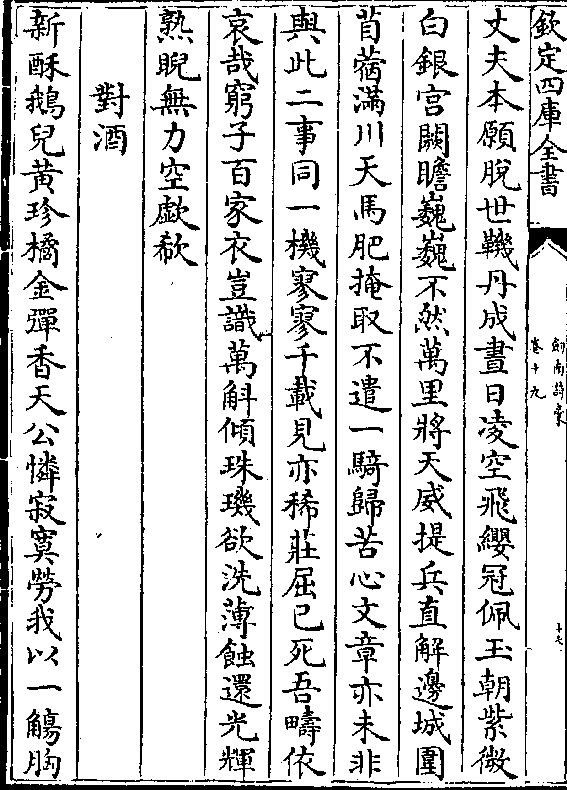 欽定四庫全書
劍南詩稾
卷十九
十七
丈夫本願脫世鞿丹成晝日凌空飛纓冠佩玉朝紫微
白銀宫闕瞻巍巍不然萬里將天威提兵直解邊城圍
苜蓿滿川天馬肥掩取不遣一騎歸苦心文章亦未非
與此二事同一機寥寥千載見亦稀莊屈已死吾疇依
哀哉窮子百家衣豈識萬斛傾珠璣欲洗薄蝕還光輝
熟睨無力空歔欷
對酒
新酥鵝兒黃珍橘金彈香天公憐寂寞勞我以一觴胸